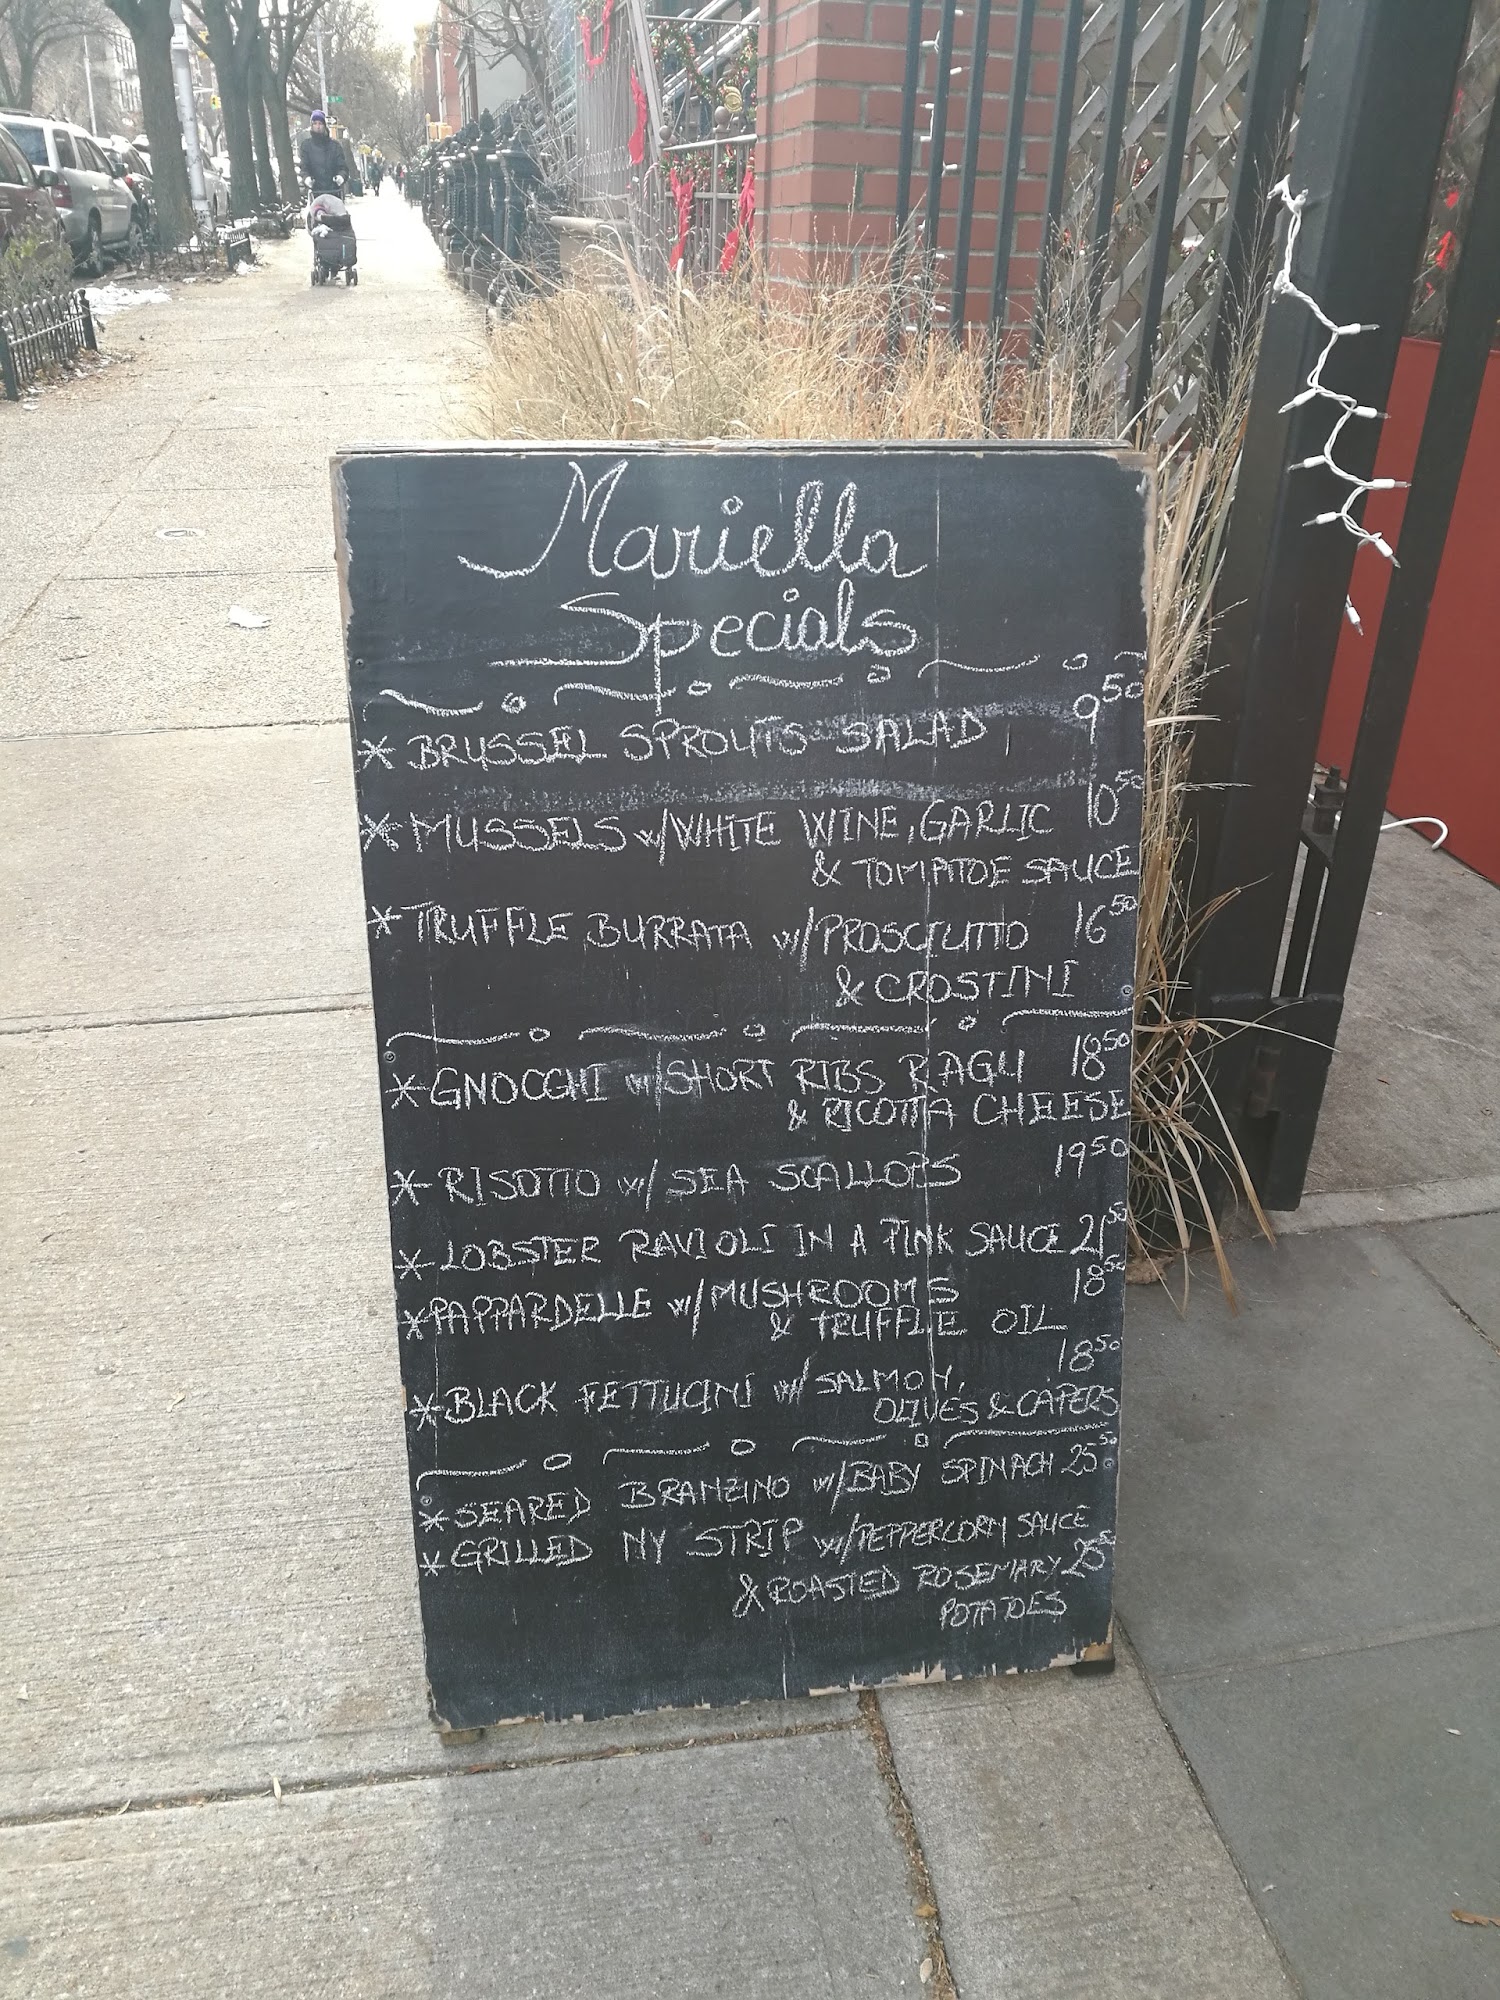 Mariella
Specials
* BRUSSEL SPROUTS SALAD, 9 50
* MUSSELS w/WHITE WINE, GARLIC 10 50
& TOMATOE SAUCE
* TRUFFLE BURRATA w/PROSCIUTTO 16 50
& CROSTINI
* GNOCCHI w/SHORT RIBS RAGU 18 50
& RICOTTA CHEESE
* RISOTTO w/ SEA SCALLOPS 19 50
* LOBSTER RAVIOLI IN A PINK SAUCE 21 50
* PAPPARDELLE w/MUSHROOMS 18 50
& TRUFFLE OIL
* BLACK FETTUCINI w/SALMON, 18 50
OLIVES & CAPERS
* SEARED BRANZINO w/BABY SPINACH 25 50
* GRILLED NY STRIP w/PEPPERCORN SAUCE
& ROASTED ROSEMARY 25 50
POTATOES